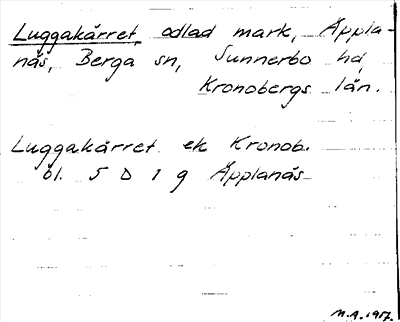 Luggakärret, odlad mark, Äppla-
nås, Berga sn, Sunnerbo hd,
Kronobergs län.
Luggakärret ek Kronob.
bl. 5 D 1 g Äpplanås
M.A. 1917.